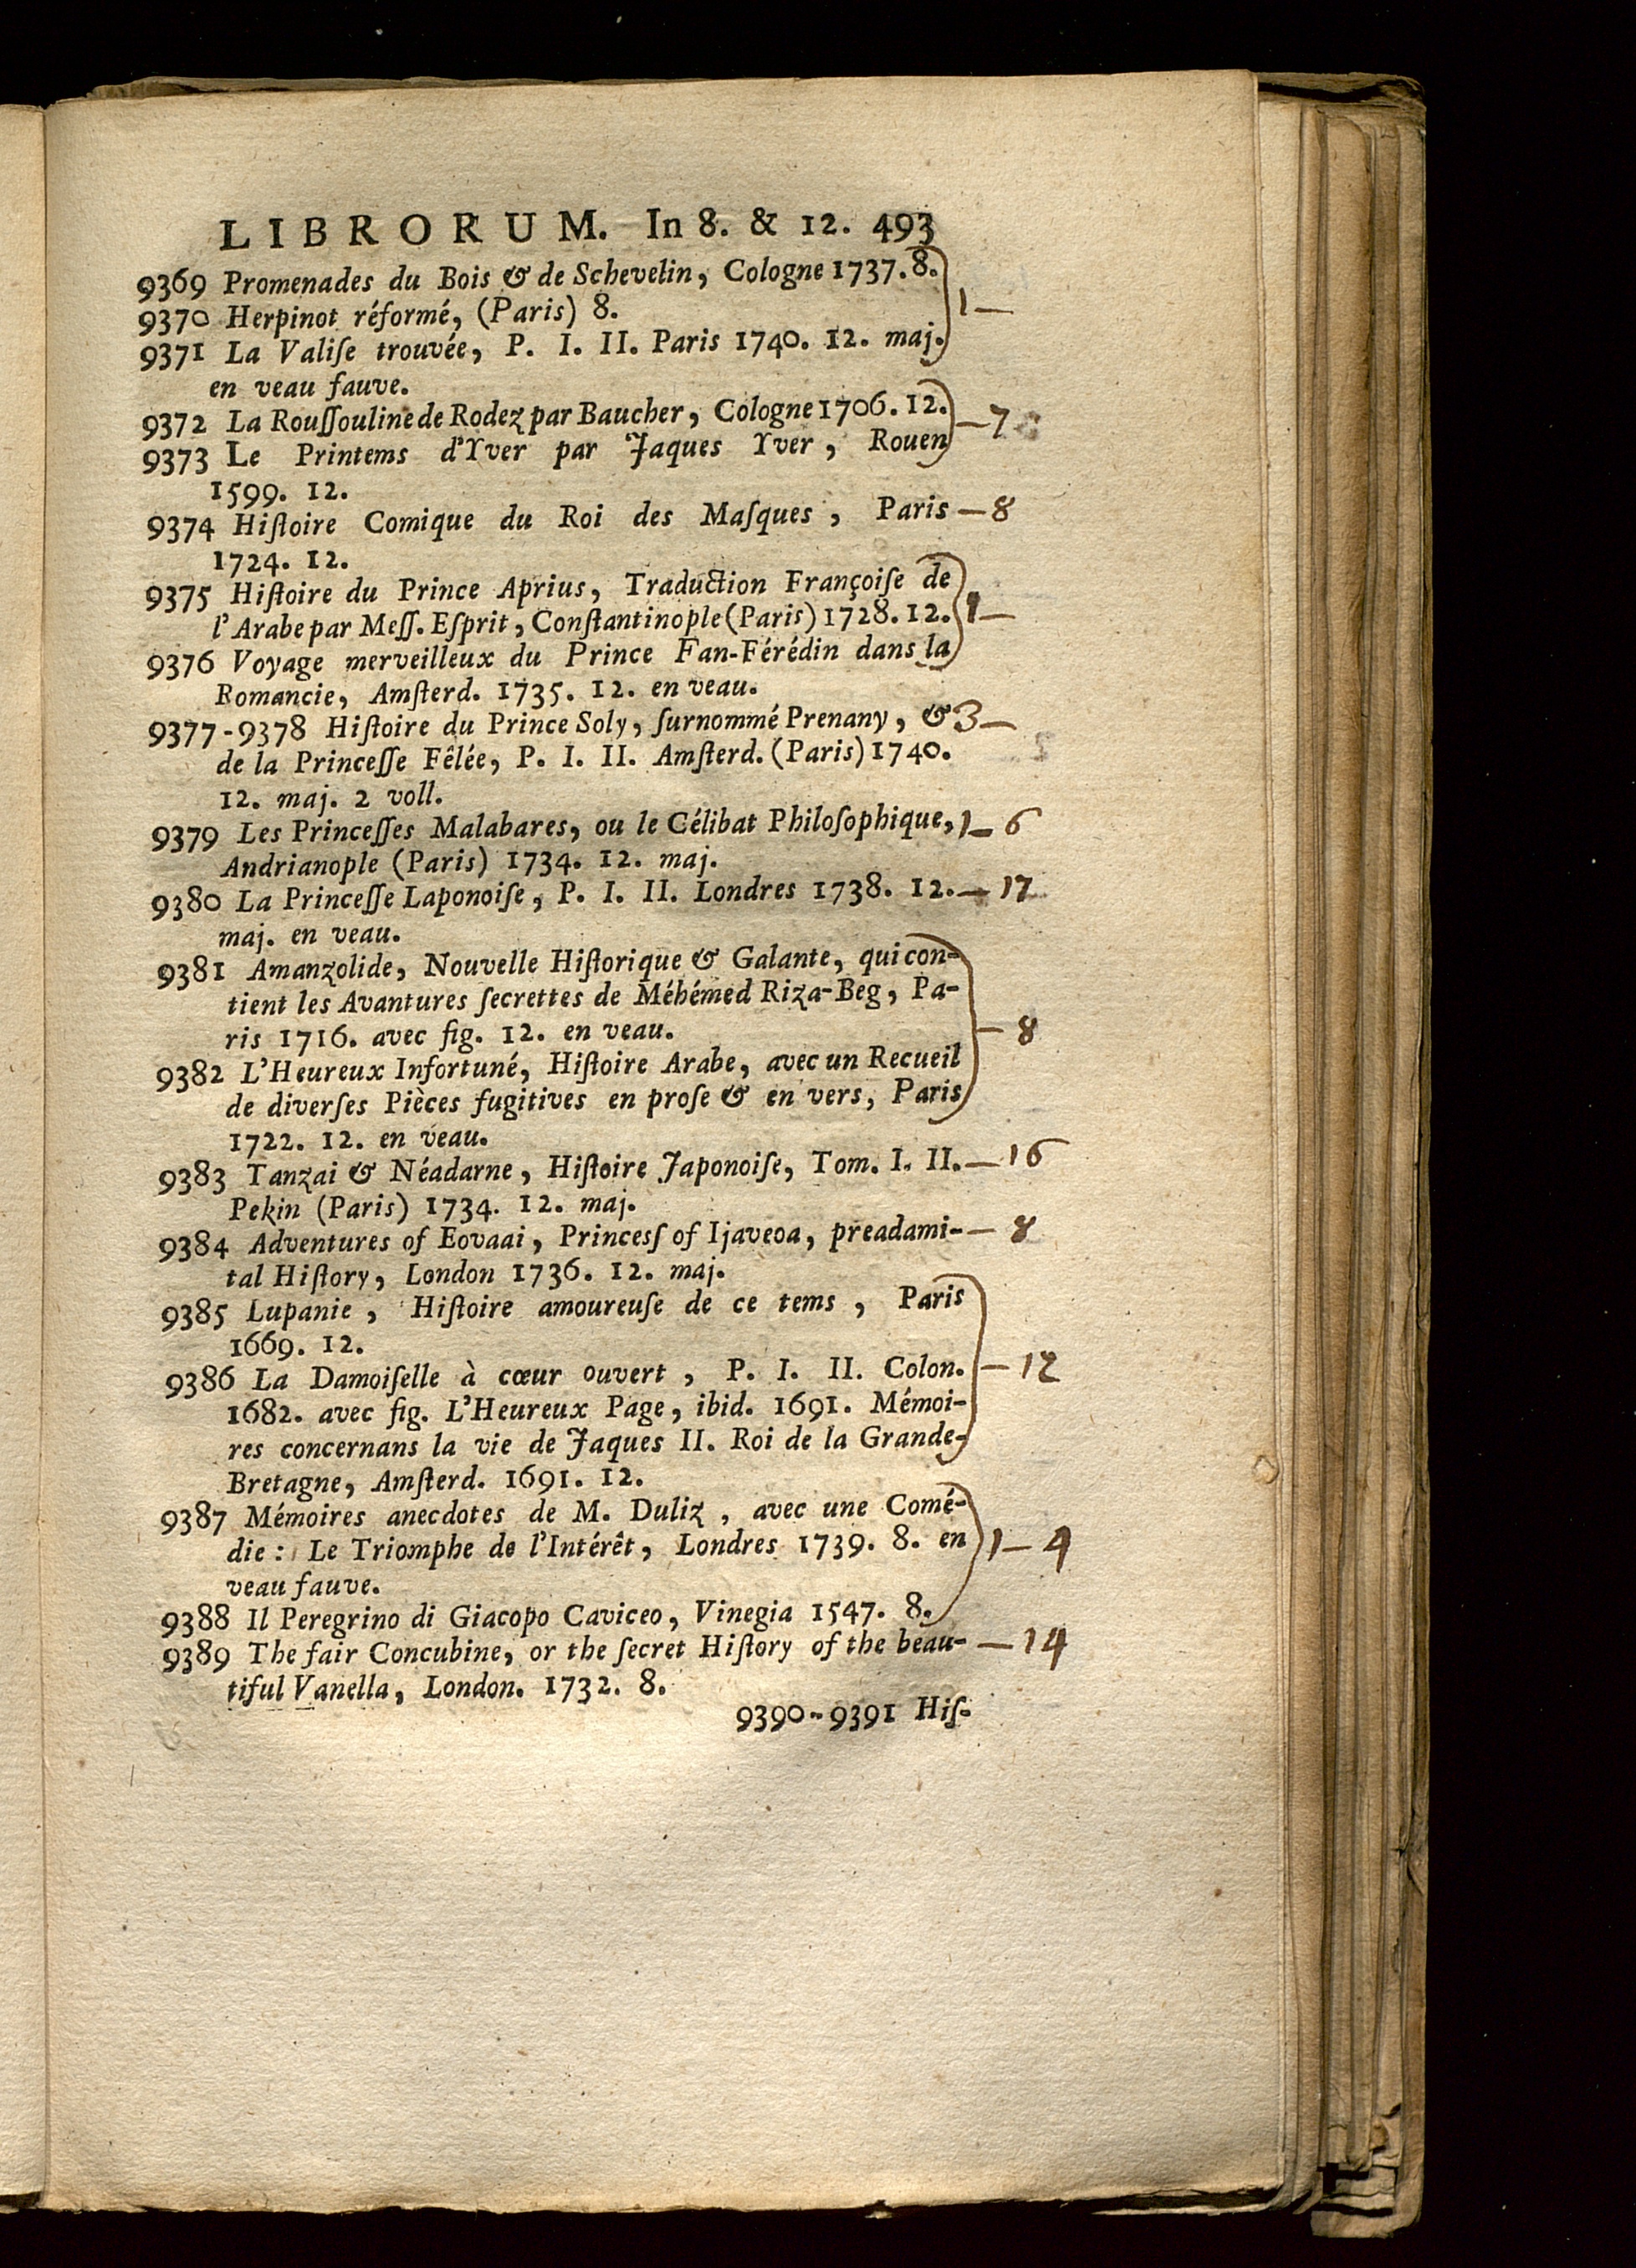 LIBRORUM. In 8. & 12. 493
9369 Promenades du Bois & de Schevelin, Cologne 1737. 8.
9370 Herpinot réformé, (Paris) 8. 1 —
9371 La Valiſe trouvée, P. I. II. Paris 1740. 12. maj.
en veau fauve.
9372 La Rouſſouline de Rodez par Baucher, Cologne 1706. 12. — 7
9373 Le Printems d'Yver par Jaques Yver, Rouen
1599. 12.
9374 Hiſtoire Comique du Roi des Maſques, Paris — 8
1724. 12.
9375 Hiſtoire du Prince Aprius, Traduction Françoiſe de
l'Arabe par Meſſ. Eſprit, Conſtantinople (Paris) 1728. 12. 1 —
9376 Voyage merveilleux du Prince Fan-Férédin dans la
Romancie, Amſterd. 1735. 12. en veau.
9377-9378 Hiſtoire du Prince Soly, ſurnommé Prenany, & 3 —
de la Princeſſe Fêlée, P. I. II. Amſterd. (Paris) 1740.
12. maj. 2 voll.
9379 Les Princeſſes Malabares, ou le Célibat Philoſophique, 1 — 6
Andrianople (Paris) 1734. 12. maj.
9380 La Princeſſe Laponoiſe, P. I. II. Londres 1738. 12. — 17
maj. en veau.
9381 Amanzolide, Nouvelle Hiſtorique & Galante, qui con-
tient les Avantures ſecrettes de Méhémed Riza-Beg, Pa-
ris 1716. avec fig. 12. en veau. — 8
9382 L'Heureux Infortuné, Hiſtoire Arabe, avec un Recueil
de diverſes Pièces fugitives en proſe & en vers, Paris
1722. 12. en veau.
9383 Tanzai & Néadarne, Hiſtoire Japonoiſe, Tom. I. II. — 16
Pekin (Paris) 1734. 12. maj.
9384 Adventures of Eovaai, Princeſſ of Ijaveoa, preadami- — 8
tal Hiſtory, London 1736. 12. maj.
9385 Lupanie, Hiſtoire amoureuſe de ce tems, Paris
1669. 12.
9386 La Damoiſelle à cœur ouvert, P. I. II. Colon. — 12
1682. avec fig. L'Heureux Page, ibid. 1691. Mémoi-
res concernans la vie de Jaques II. Roi de la Grande-
Bretagne, Amſterd. 1691. 12.
9387 Mémoires anecdotes de M. Duliz, avec une Comé-
die: Le Triomphe de l'Intérêt, Londres 1739. 8. en 1 — 4
veau fauve.
9388 Il Peregrino di Giacopo Caviceo, Vinegia 1547. 8.
9389 The fair Concubine, or the ſecret Hiſtory of the beau- — 14
tiful Vanella, London. 1732. 8.
9390-9391 Hiſ-